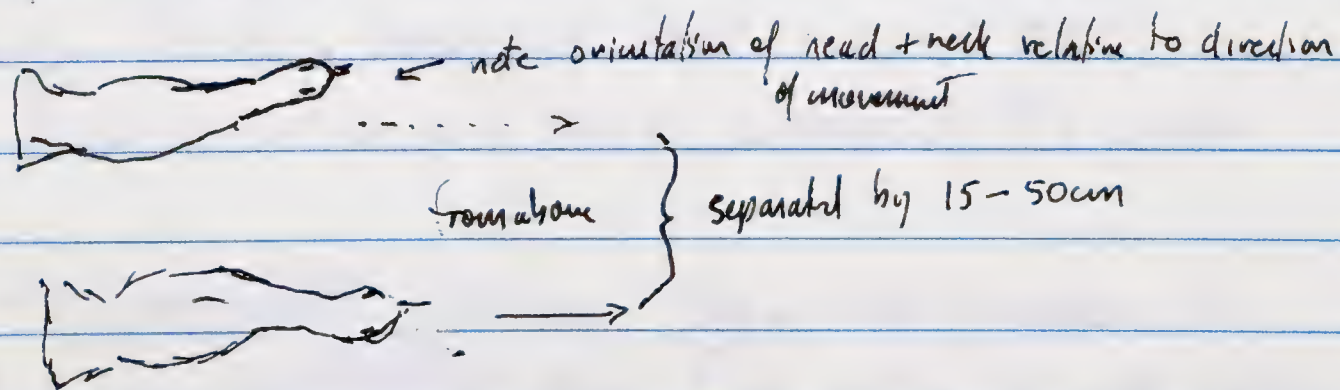 note orientation of head + neck relative to direction
of movement
from above
separated by 15 - 50cm